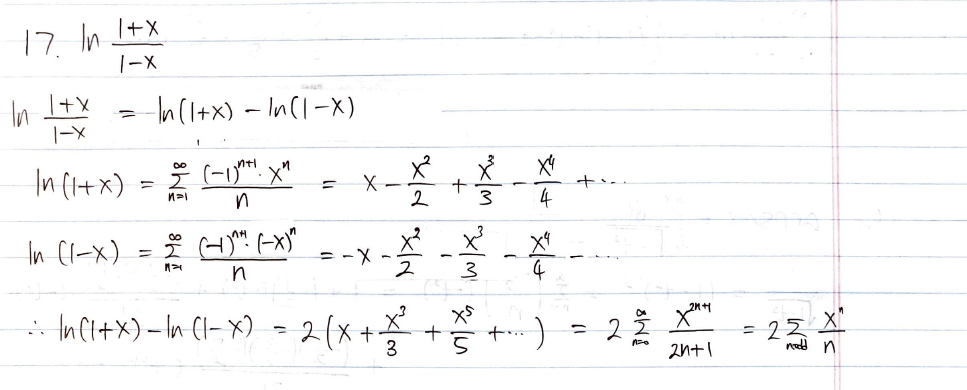 17. ln (1+x)/(1-x)
ln (1+x)/(1-x) = ln(1+x) - ln(1-x)
ln(1+x) = ∑_{n=1}^{∞} ((-1)^{n+1} · x^n)/n = x - x²/2 + x³/3 - x⁴/4 + ...
ln (1-x) = ∑_{n=1}^{∞} ((-1)^{n+1} · (-x)^n)/n = -x - x²/2 - x³/3 - x⁴/4 - ...
∴ ln(1+x) - ln(1-x) = 2(x + x³/3 + x⁵/5 + ...) = 2 ∑_{n=0}^{∞} x^{2n+1}/(2n+1) = 2 ∑_{n odd} x^n/n